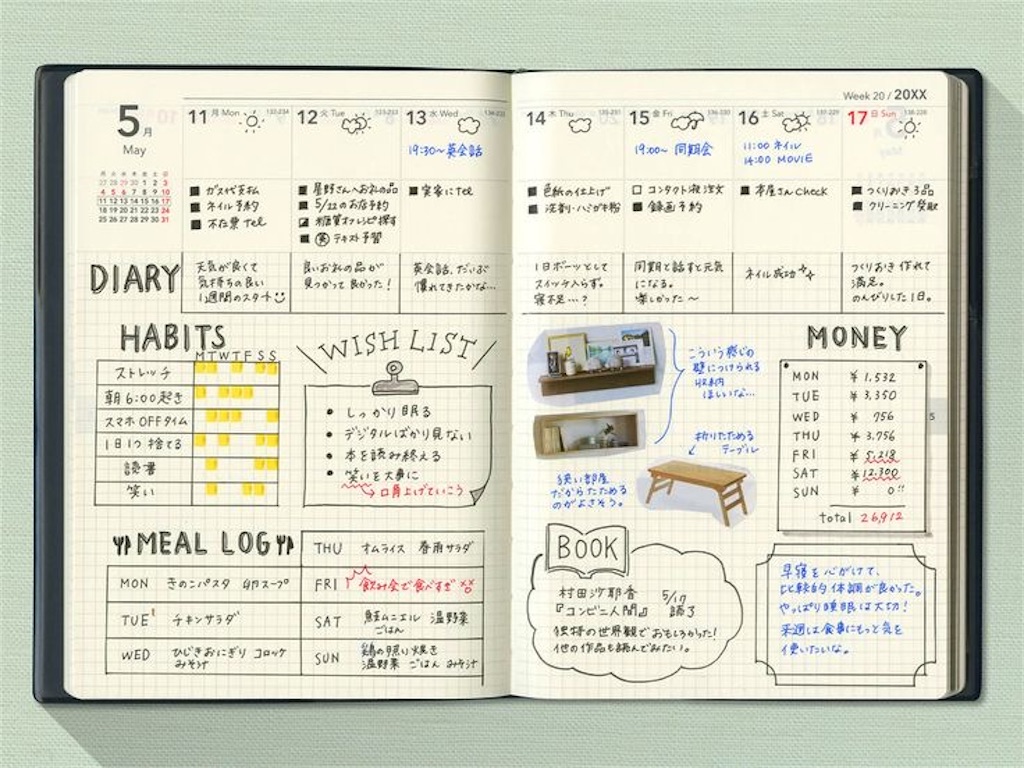 5月
May
月 火 水 木 金 土 日
27 28 29 30 1 2 3
4 5 6 7 8 9 10
11 12 13 14 15 16 17
18 19 20 21 22 23 24
25 26 27 28 29 30 31
11 月 Mon 132-234
■ ガス代支払
■ ネイル予約
■ 不在票 Tel
12 火 Tue 133-233
■ 星野さんへお礼の品
■ 5/22のお店予約
糖質オフレシピ探す
英 テキスト予習
13 水 Wed 134-232
19:30〜英会話
■ 実家にTel
Week 20 / 20XX
14 木 Thu 135-231
■ 色紙の仕上げ
■ 洗剤・ハミガキ粉
15 金 Fri 136-230
19:00〜 同期会
□ コンタクト液注文
■ 録画予約
16 土 Sat 137-229
11:00 ネイル
14:00 MOVIE
■ 本屋さん Check
17 日 Sun 138-228
■ つくりおき3品
■ クリーニング受取
DIARY
天気が良くて
気持ちの良い
1週間のスタート
良いお礼の品が
見つかって良かった!
英会話、だいぶ
慣れてきたかな…
1日ボーッとして
スイッチ入らず。
寝不足…?
同期と話すと元気
になる。
楽しかった〜
ネイル成功
つくりおき作れて
満足。
のんびりした1日。
HABITS
M T W T F S S
ストレッチ
朝6:00起き
スマホOFFタイム
1日1つ捨てる
読書
笑い
WISH LIST
• しっかり眠る
• デジタルばかり見ない
• 本を読み終える
• 笑いを大事に
口角上げていこう
MEAL LOG
MON きのこパスタ 卵スープ
TUE チキンサラダ
WED ひじきおにぎり コロッケ
みそ汁
THU オムライス 春雨サラダ
FRI 飲み会で食べすぎ××
SAT 鮭ムニエル 温野菜
ごはん
SUN 鶏の照り焼き
温野菜 ごはん みそ汁
こういう感じの
壁につけられる
収納
ほしいな…
折りたためる
テーブル
狭い部屋
だからたためる
のがよさそう。
MONEY
MON ¥ 1,532
TUE ¥ 3,350
WED ¥ 756
THU ¥ 3,756
FRI ¥ 5,218
SAT ¥ 12,300
SUN ¥ 0!!
total 26,912
BOOK
村田沙耶香 5/17
『コンビニ人間』 読了
独特の世界観でおもしろかった!
他の作品も読んでみたい。
早寝を心がけて、
比較的体調が良かった。
やっぱり睡眠は大切!
来週は食事にもっと気を
使いたいな。